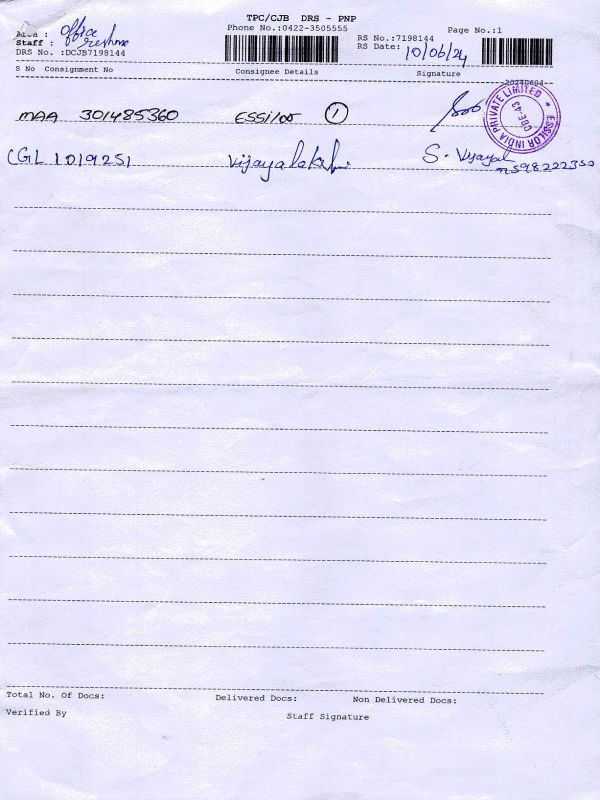 TPC/CJB DRS - PNP
Phone No.:0422-3505555
Page No.:1
Area : office
Staff : Reshma
RS No.:7198144
RS Date: 10/06/24
DRS No. :DCJB7198144
S No Consignment No Consignee Details Signature
20240604
MAA 301485360 Essilor 1
ESSILOR INDIA PRIVATE LIMITED ★
CBE-43
CGL 1019251 Vijayalakshmi S. Vijayal
Total No. Of Docs: Delivered Docs: Non Delivered Docs:
Verified By Staff Signature